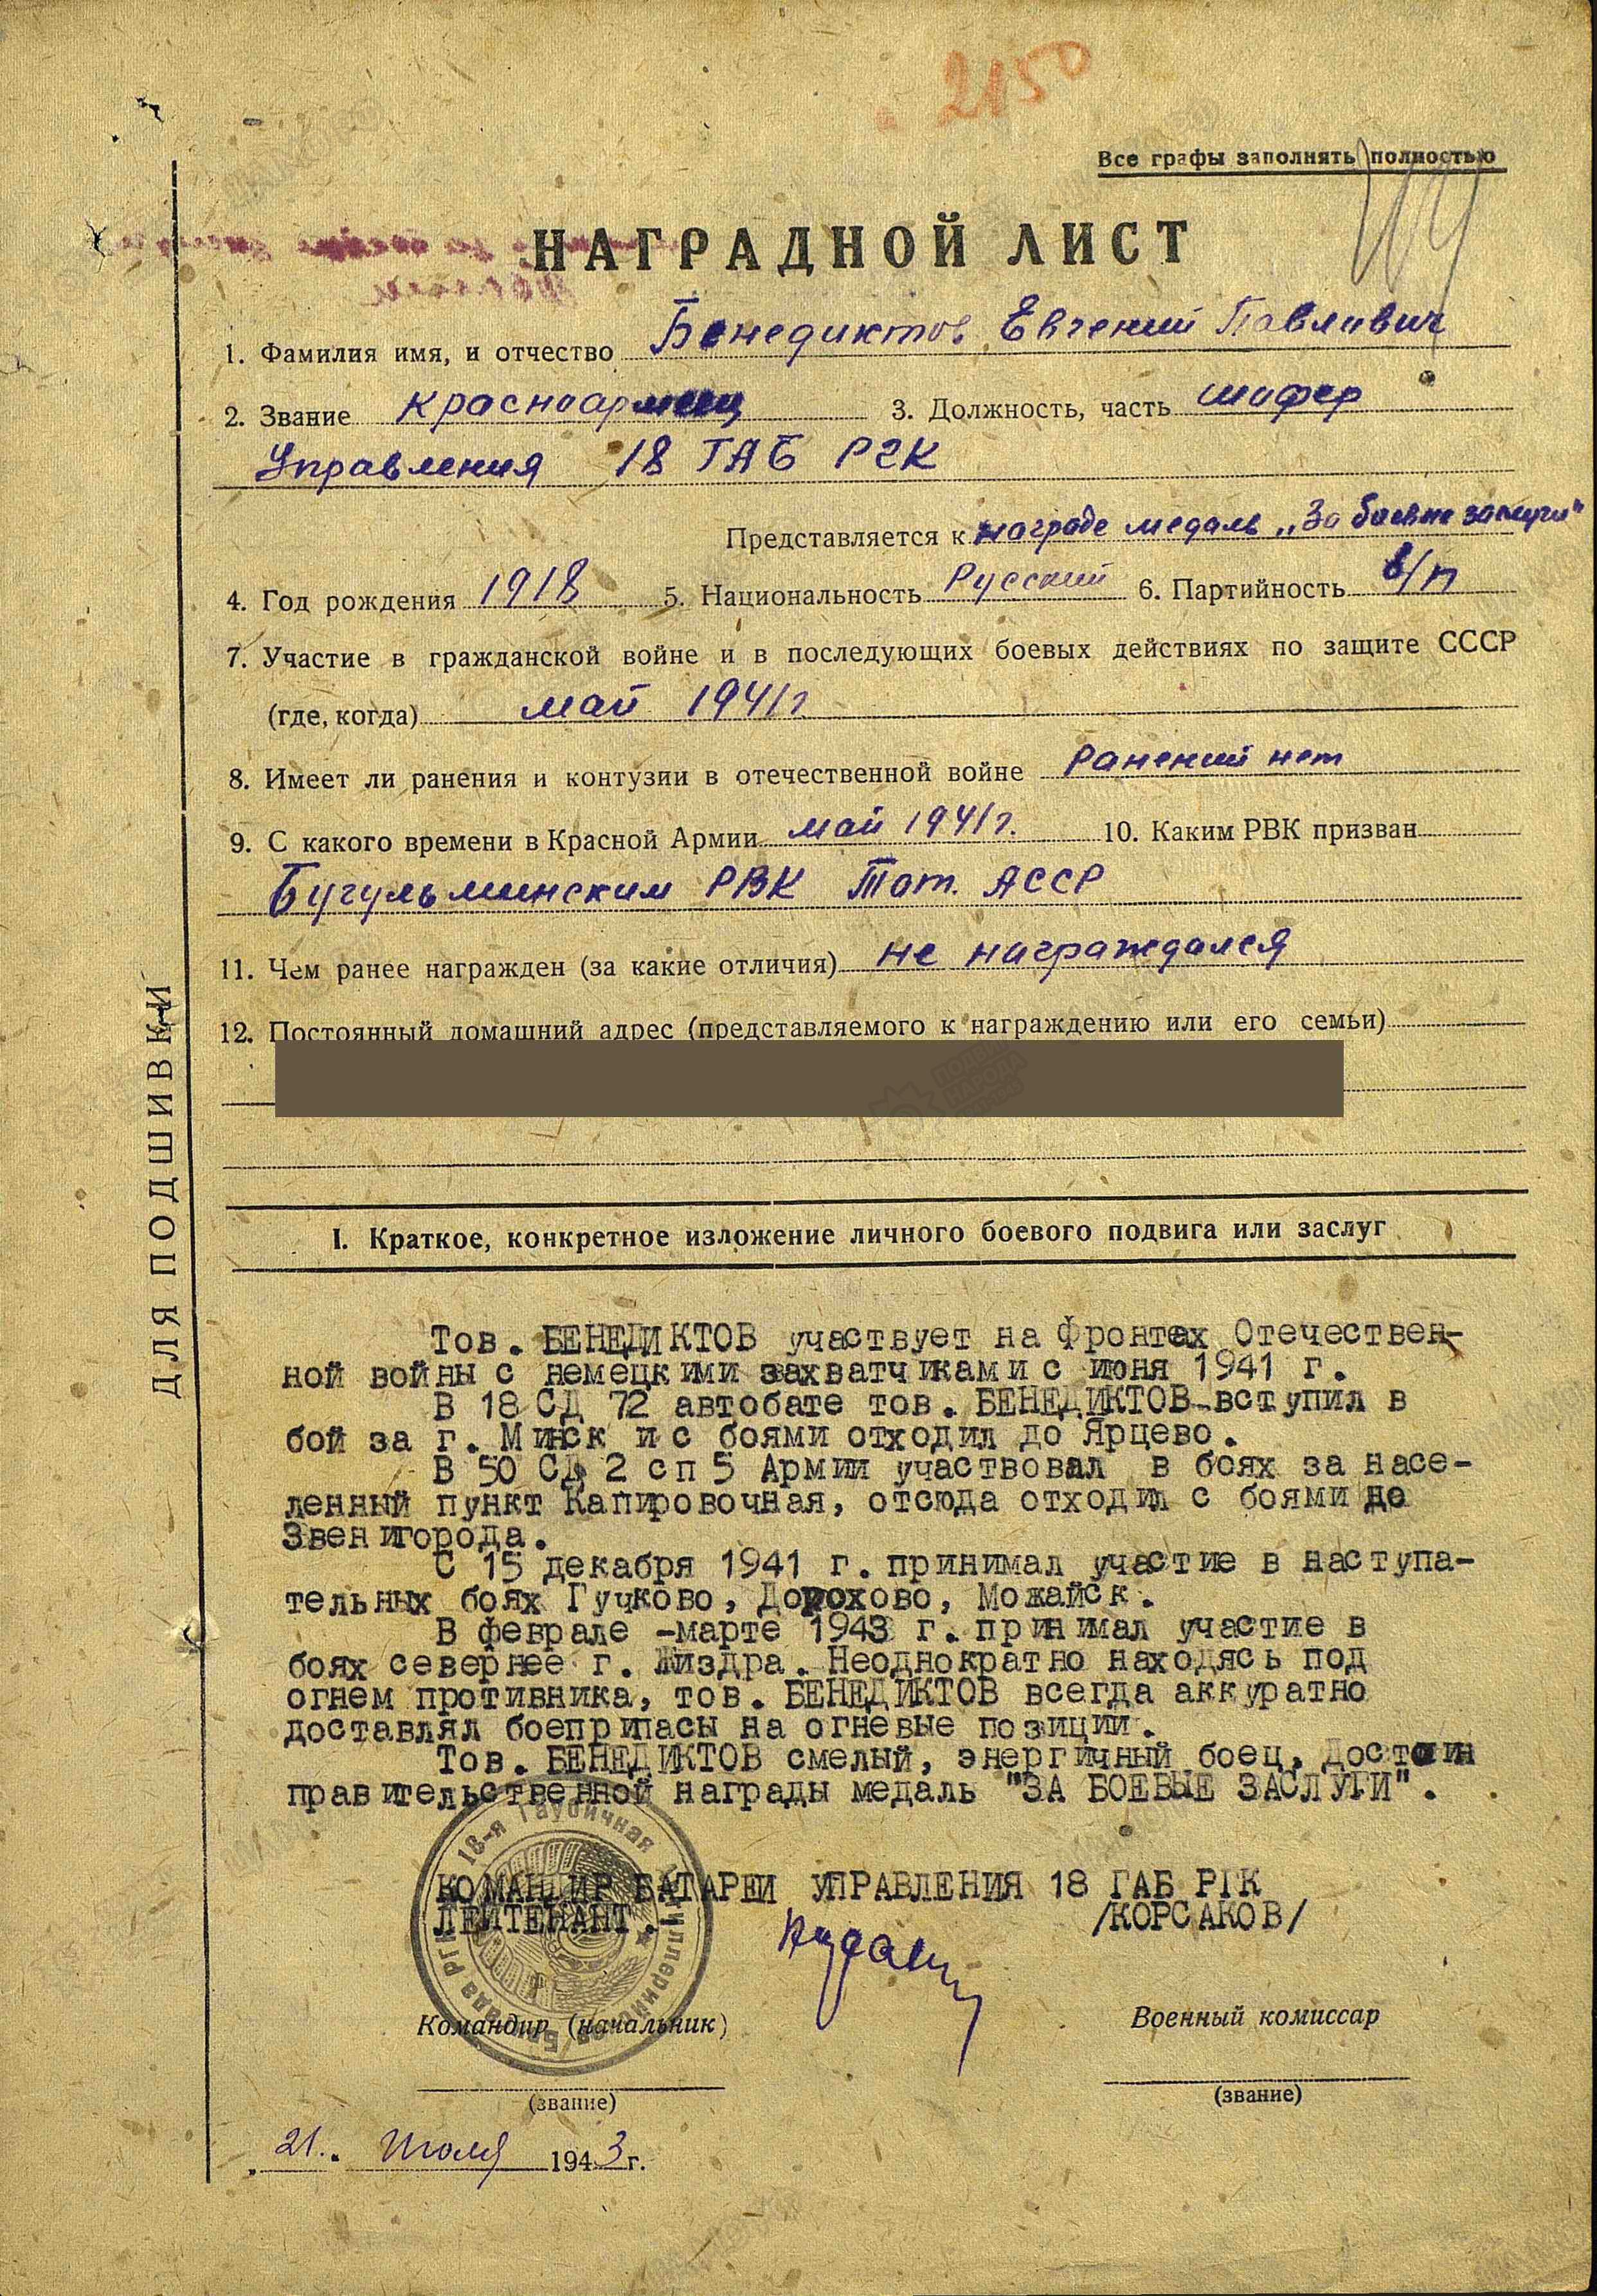 2150
Все графы заполнять полностью
НАГРАДНОЙ ЛИСТ
1. Фамилия имя, и отчество Бенедиктов Евгений Павлович
2. Звание красноармеец 3. Должность, часть шофер
Управления 18 ГАБ РГК
Представляется к награде медаль „За боевые заслуги"
4. Год рождения 1918 5. Национальность Русский 6. Партийность б/п
7. Участие в гражданской войне и в последующих боевых действиях по защите СССР
(где, когда) май 1941 г.
8. Имеет ли ранения и контузии в отечественной войне Ранений нет
9. С какого времени в Красной Армии май 1941 г. 10. Каким РВК призван
Бугульминским РВК Тат. АССР
11. Чем ранее награжден (за какие отличия) не награждался
12. Постоянный домашний адрес (представляемого к награждению или его семьи)
ДЛЯ ПОДШИВКИ
I. Краткое, конкретное изложение личного боевого подвига или заслуг
Тов. БЕНЕДИКТОВ участвует на фронтах Отечествен-
ной войны с немецкими захватчиками с июня 1941 г.
В 18 СД 72 автобате тов. БЕНЕДИКТОВ вступил в
бой за г. Минск и с боями отходил до Ярцево.
В 50 СД 2 сп 5 Армии участвовал в боях за насе-
ленный пункт Капировочная, отсюда отходил с боями до
Звенигорода.
С 15 декабря 1941 г. принимал участие в наступа-
тельных боях Гучково, Дорохово, Можайск.
В феврале -марте 1943 г. принимал участие в
боях севернее г. Жиздра. Неоднократно находясь под
огнем противника, тов. БЕНЕДИКТОВ всегда аккуратно
доставлял боеприпасы на огневые позиции.
Тов. БЕНЕДИКТОВ смелый, энергичный боец, достоин
правительственной награды медаль "ЗА БОЕВЫЕ ЗАСЛУГИ".
18-я Гаубичная Артиллерийская Бригада РГК
КОМАНДИР БАТАРЕИ УПРАВЛЕНИЯ 18 ГАБ РГК
ЛЕЙТЕНАНТ. /КОРСАКОВ/
Командир (начальник) Военный комиссар
(звание) (звание)
„21." Июля 1943 г.